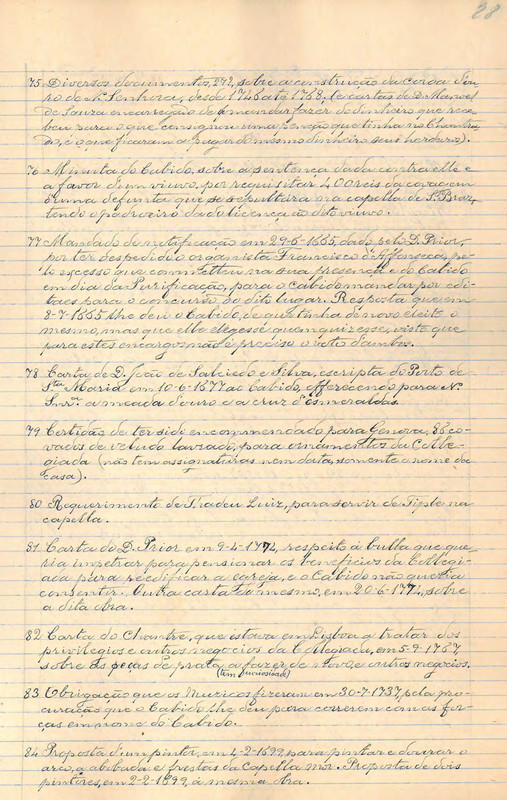 28
75 Diversos documentos, 272, sobre a construção da corôa d'ou-
ro de N. Senhora, desde 1748 até 1768, (e cartas de D. Manoel
de Souza encarregado de mandar fazer do dinheiro que rece-
beu para o que consignou uma tenção que tinha no Chantra-
do, e o que ficaram a pagar do mesmo dinheiro seus herdeiros).
76 Minuta do Cabido, sobre a sentença dada contra elle e
a favor d'um viuvo, por requisitar 400 reis da covagem
d'uma defunta que se sepultára na capella de S. Braz,
tendo o padroeiro dado licença ao dito viuvo.
77 Mandado de notificação em 29-6-1665, dado pelo D. Prior,
por ter despedido o organista Francisco d'Affonseca, pe-
lo excesso que commetteu na sua presença e do Cabido
em dia da Purificação, para o Cabido mandar por edi-
taes para o concurso do dito lugar. Resposta que em
8-7-1665 lhe deu o Cabido, de que tinha de novo eleito o
mesmo, mas que elle elegesse quem quizesse, visto que
para estes encargos não é preciso o voto d'ambos.
78 Carta de D. João de Salcedo e Silva, escripta do Porto de
Sta. Maria em 10-6-1677 ao Cabido, offerecendo para N.
Snra. a meada d'ouro e a cruz d'esmeraldas.
79 Certidão de ter sido encommendado para Genova, 86 co-
vados de veludo lavrado, para ornamentos da Colle-
giada (não tem assignaturas nem data, somente o nome da
casa).
80 Requerimento de Thadeu Luiz, para servir de Tiple na
capella.
81 Carta do D. Prior em 9-4-1772, respeito á bulla que que-
ria impetrar para pensionar os beneficios da Collegi-
ada para reedificar a egreja, e o Cabido não queria
consentir. Outra carta do mesmo, em 20-6-177, sobre
a dita obra.
82 Carta do Chantre, que estava em Lisboa a tratar dos
privilegios e outros negocios da Collegiada, em 5-9-1767
sobre as peças de prata a fazer de novo, e outros negocios.
(tem curiosidade)
83 Obrigação que os Muzicos fizeram em 30-7-1737, pela pro-
curação que o Cabido lhe deu para correrem com as for-
ças em nome do Cabido.
84 Proposta d'um pintor, em 4-2-1699, para pintar e dourar o
arco, a abobada e frestas da capella mór. Proposta de dois
pintores, em 2-2-1699, á mesma obra.